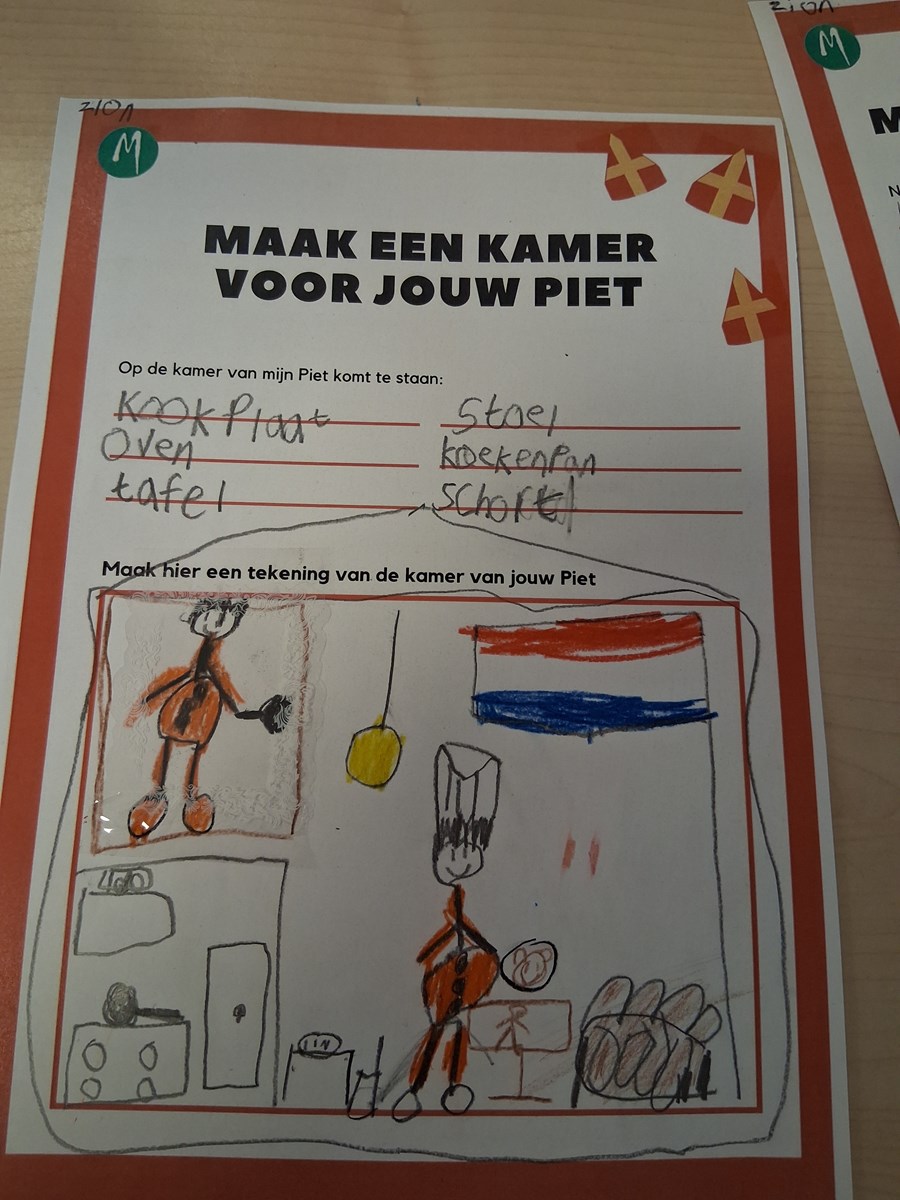 zion
zion
M
M
MAAK EEN KAMER
VOOR JOUW PIET
M
N
Op de kamer van mijn Piet komt te staan:
kookplaat stoel
oven koekenpan
tafel schort
Maak hier een tekening van de kamer van jouw Piet